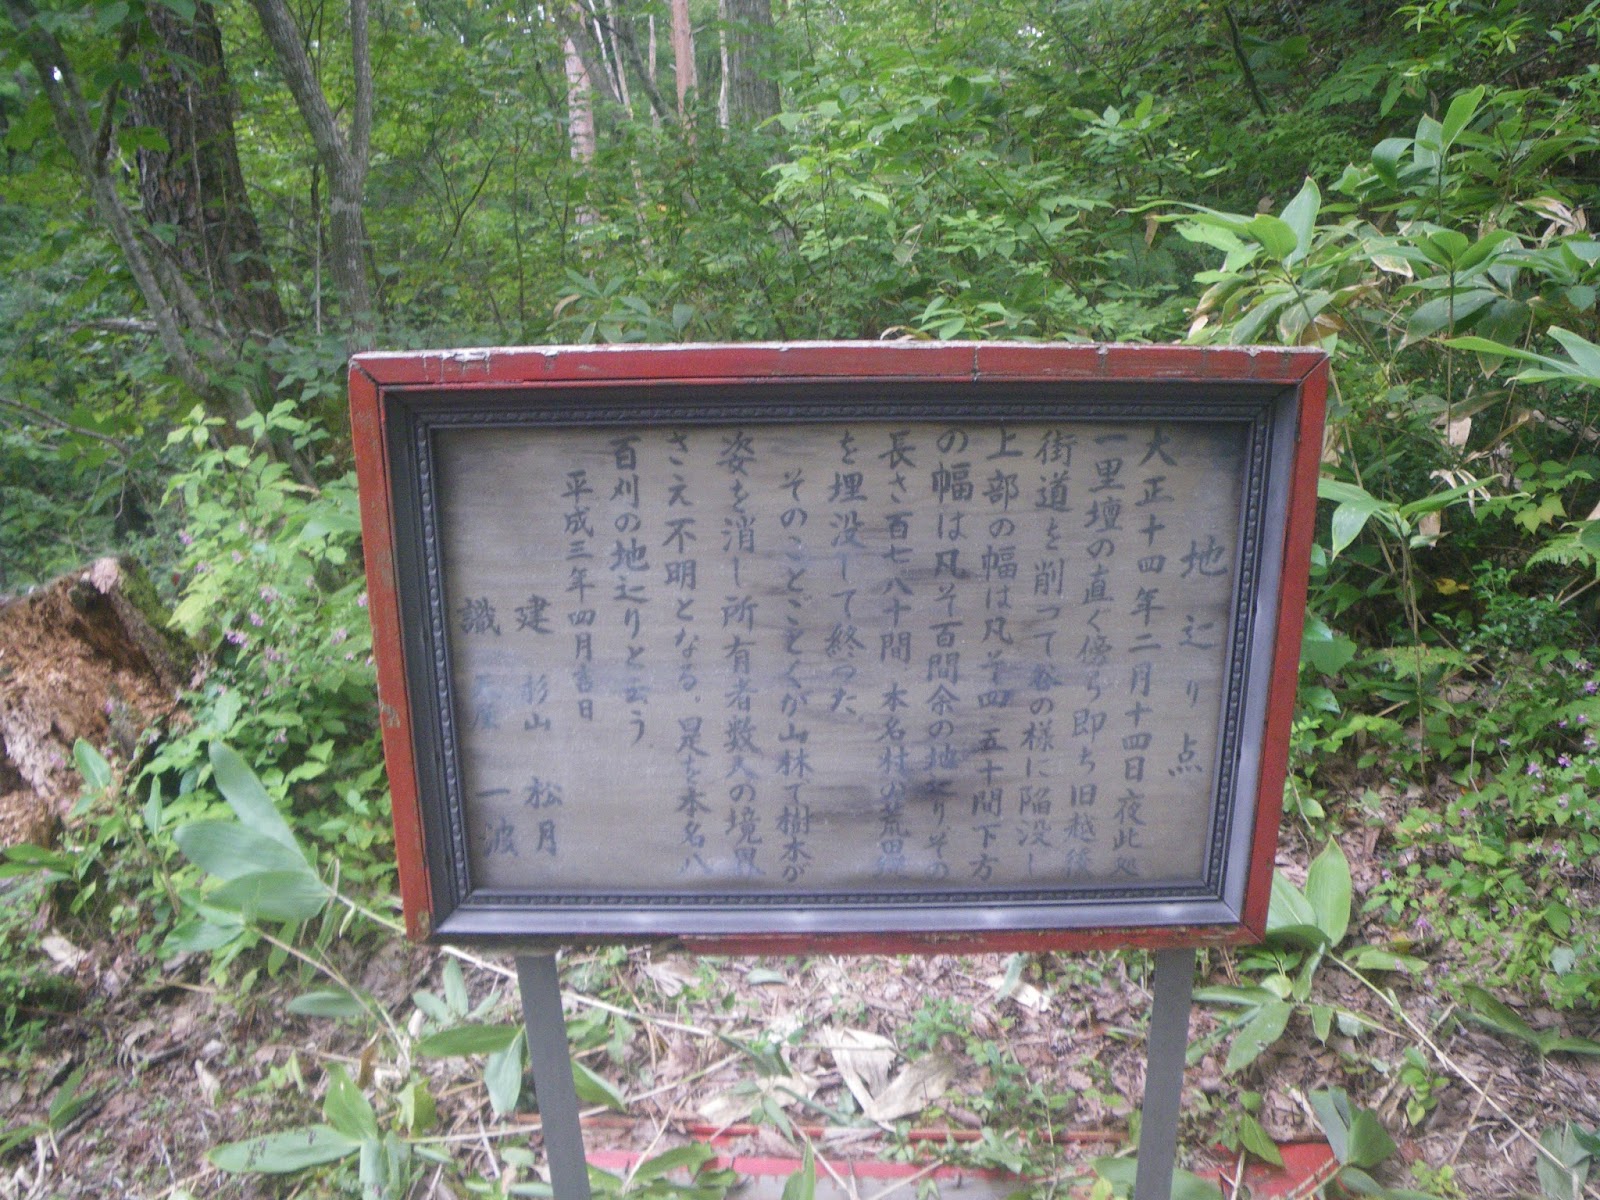 地辷り点
大正十四年二月十四日夜此処
一里壇の直ぐ傍ら即ち旧越後
街道を削って谷の様に陥没し
上部の幅は凡そ四、五十間下方
の幅は凡そ百間余の地辷りその
長さ百七八十間 本名村の荒田
を埋没して終った
そのことごとくが山林で樹木が
姿を消し所有者数人の境界
さえ不明となる。是を本名八
百刈の地辷りと云う
平成三年四月吉日
建 杉山 松月
識 一波